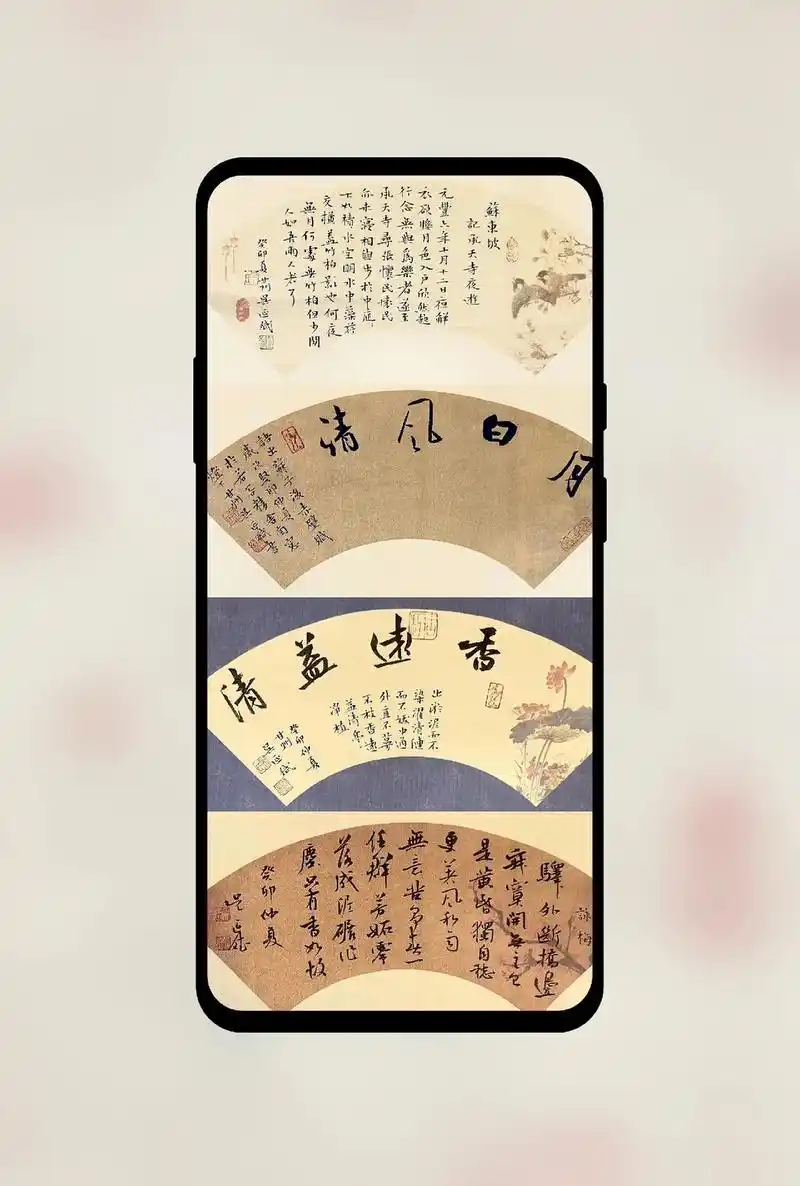 蘇東坡
記承天寺夜遊
元豐六年十月十二日夜解
衣欲睡月色入戶欣然起
行念無與為樂者遂至
承天寺尋張懷民懷民
亦未寢相與步於中庭
下如積水空明水中藻荇
交橫蓋竹柏影也何夜
無月何處無竹柏但少閒
人如吾兩人者了
癸卯夏甘州吳
月白風清
語出蘇子後赤壁賦
香遠益清
出淤泥而不
染濯清漣
而不妖中通
外直不蔓
不枝香遠
益清亭
淨植
癸卯仲夏
甘州
詠梅
驛外斷橋邊
寂寞開無主已
是黃昏獨自愁
更著風和雨
無意苦爭春一
任群芳妒零
落成泥碾作
塵只有香如故
癸卯仲夏